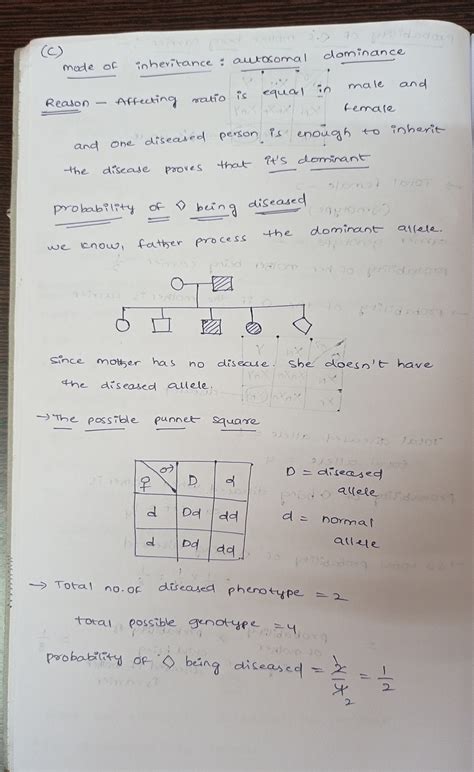 (C)
mode of inheritance : autosomal dominance
Reason – Affecting ratio is equal in male and
female
and one diseased person is enough to inherit
the disease proves that it's dominant
probability of ◇ being diseased
we know, father process the dominant allele.
Since mother has no disease. she doesn't have
the diseased allele.
→ The possible punnet square
♂ D d
♀
d Dd dd
d Dd dd
D = diseased
allele
d = normal
allele
→ Total no. of diseased phenotype = 2
total possible genotype = 4
probability of ◇ being diseased = 2/4 = 1/2
1
2